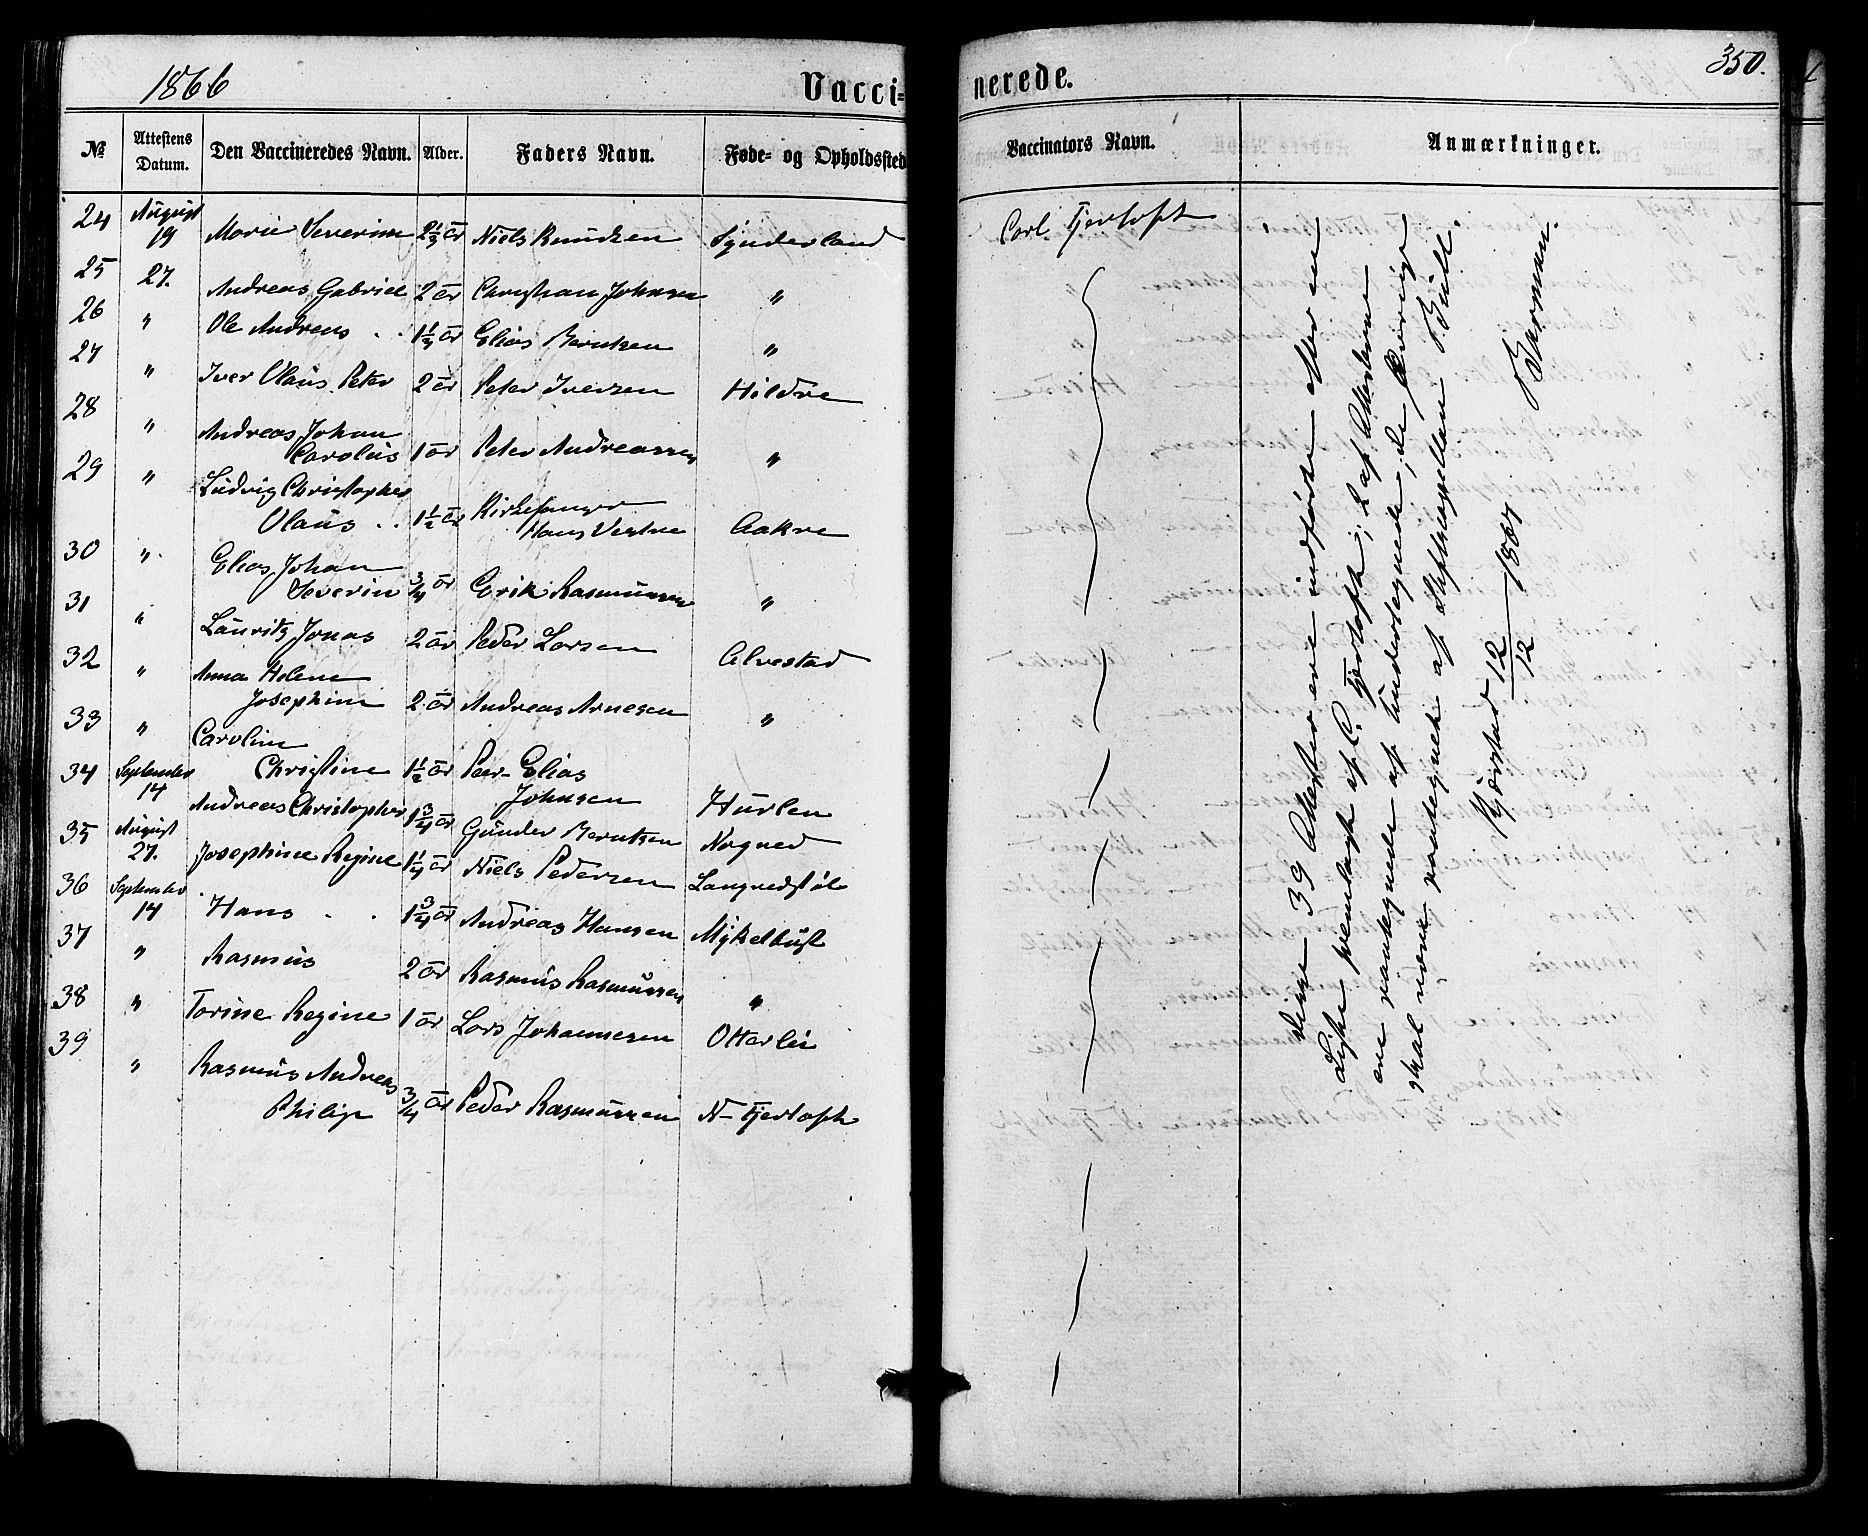 1866
Vacci=
nerede.
350.
No
Attestens Datum.
Den Vaccineredes Navn.
Alder.
Faders Navn.
Føde- og Opholdssted
Vaccinators Navn.
Anmærkninger.
24 August 19 Marie Severine 2 1/3 år Niels Knudsen Synderland Carl Fjertoft
25 27. Andreas Gabriel 2 år Christian Johnsen "
26 " Ole Andreas . . 1 1/4 år Elias Berntsen "
27 " Iver Olaus Peter 2 år Peter Iversen Hildre
28 " Andreas Johan
Carolus 1 år Peter Andreassen "
29 " Ludvig Christopher
Olaus . . 1 1/2 år Kirkesanger
Hans Vestre Aakre
30 " Elias Johan
Severin 3/4 år Erik Rasmussen "
31 " Lauritz Jonas 2 år Peder Larsen Alvestad
32 " Anna Helene
Josephine 2 år Andreas Arnesen "
33 " Caroline
Christine 1 1/2 år Peer Elias
Johnsen Hurlen
34 September 14 Andreas Christopher 1 3/4 år Gunder Berntsen Nogned
35 August 27. Josephine Regine 1 1/4 år Niels Pedersen Langvedstøl
36 September 14 Hans . . 1 3/4 år Andreas Hansen Myklebust
37 " Rasmus 2 år Rasmus Rasmussen "
38 " Torine Regine 1 år Lars Johannesen Otterlei
39 " Rasmus Andreas
Philip 3/4 år Peder Rasmussen N- Fjertoft
Disse 39 Attester ere indførte efter en
Liste fremlagt af C. Fjertoft; 2 af Attesterne
ere vantegnede af Undertegnede, de øvrige
skal være vantegnet af Stiftskapellan Bull.
Kjærstad 12/12 1867 Barman.